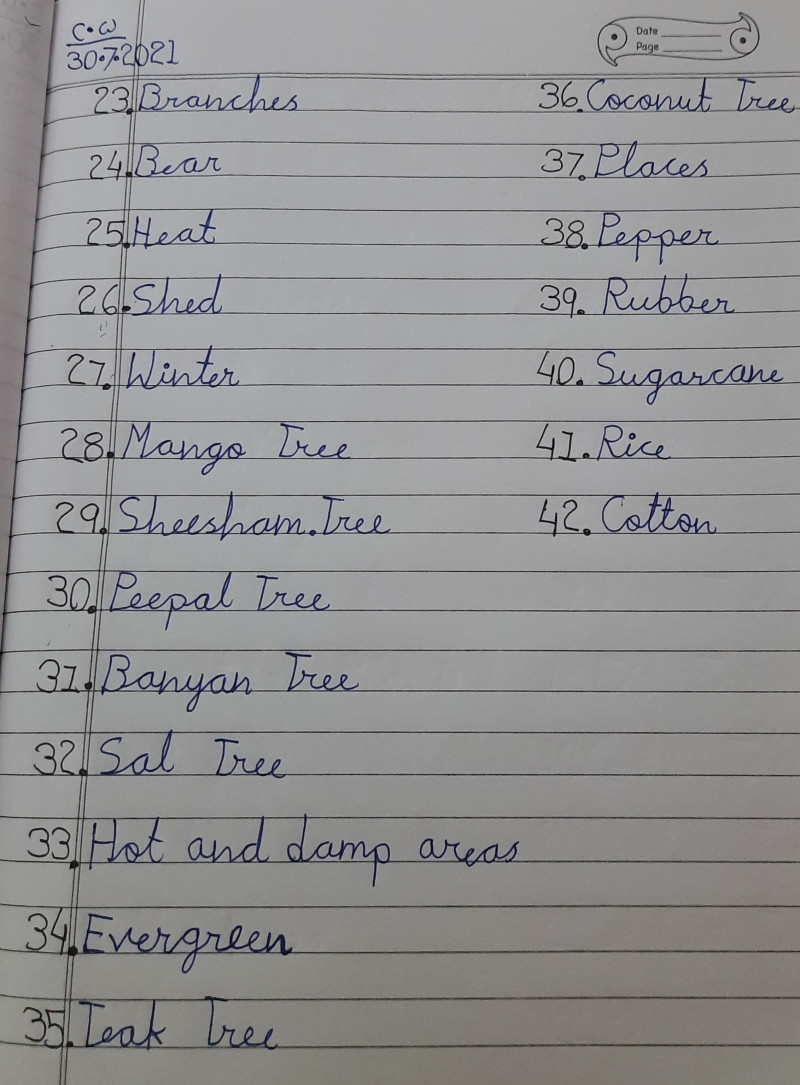 C.W
30.7.2021
Date
Page
23. Branches
24. Bear
25. Heat
26. Shed
27. Winter
28. Mango Tree
29. Sheesham.Tree
30. Peepal Tree
31. Banyan Tree
32. Sal Tree
33. Hot and damp areas
34. Evergreen
35. Teak Tree
36. Coconut Tree
37. Places
38. Pepper
39. Rubber
40. Sugarcane
41. Rice
42. Cotton